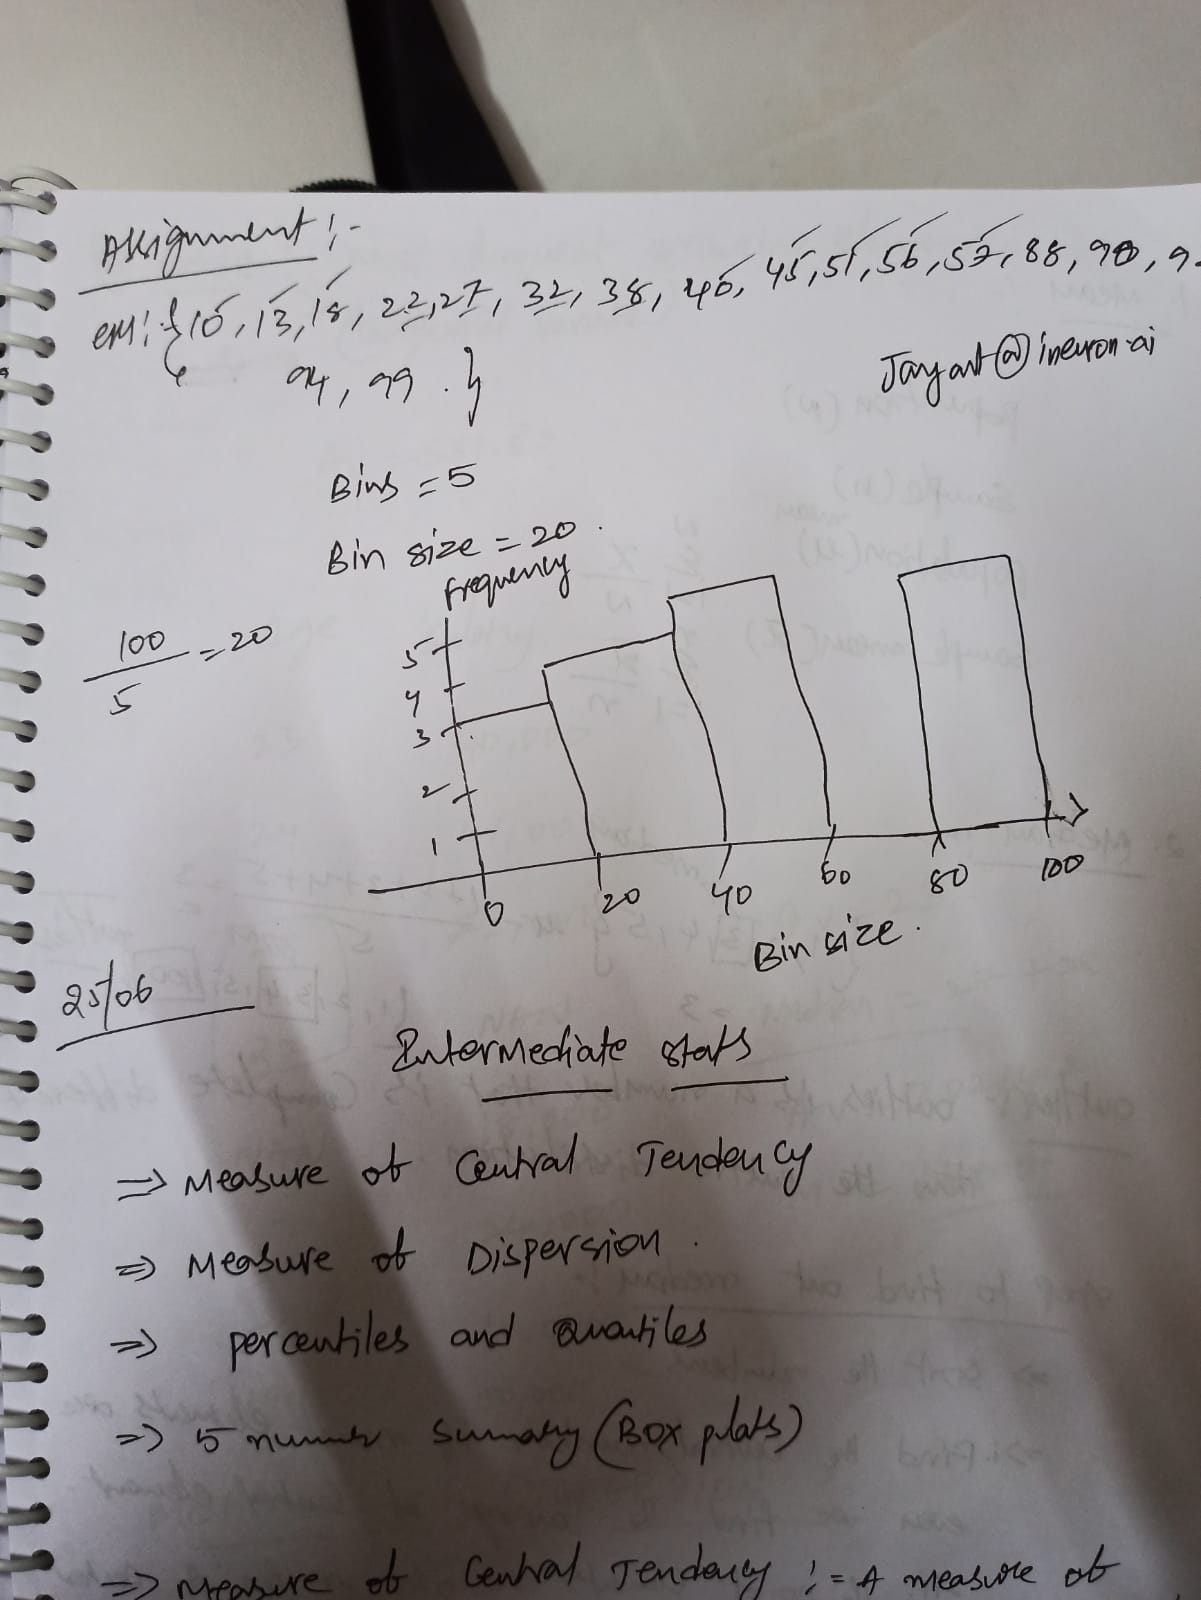 Assignment :-
ex: {10, 13, 18, 22, 27, 32, 38, 40, 45, 51, 56, 57, 88, 90, 9
94, 99 . }
Jayant@ineuron.ai
Bins = 5
Bin size = 20 .
frequency
100
5
= 20
5
4
3
2
1
0 20 40 60 80 100
Bin size .
25/06
Intermediate stats
=> Measure of Central Tendency
=> Measure of Dispersion .
=> percentiles and Quantiles
=> 5 Summary (Box plots)
=> Measure of Central Tendency := A measure of